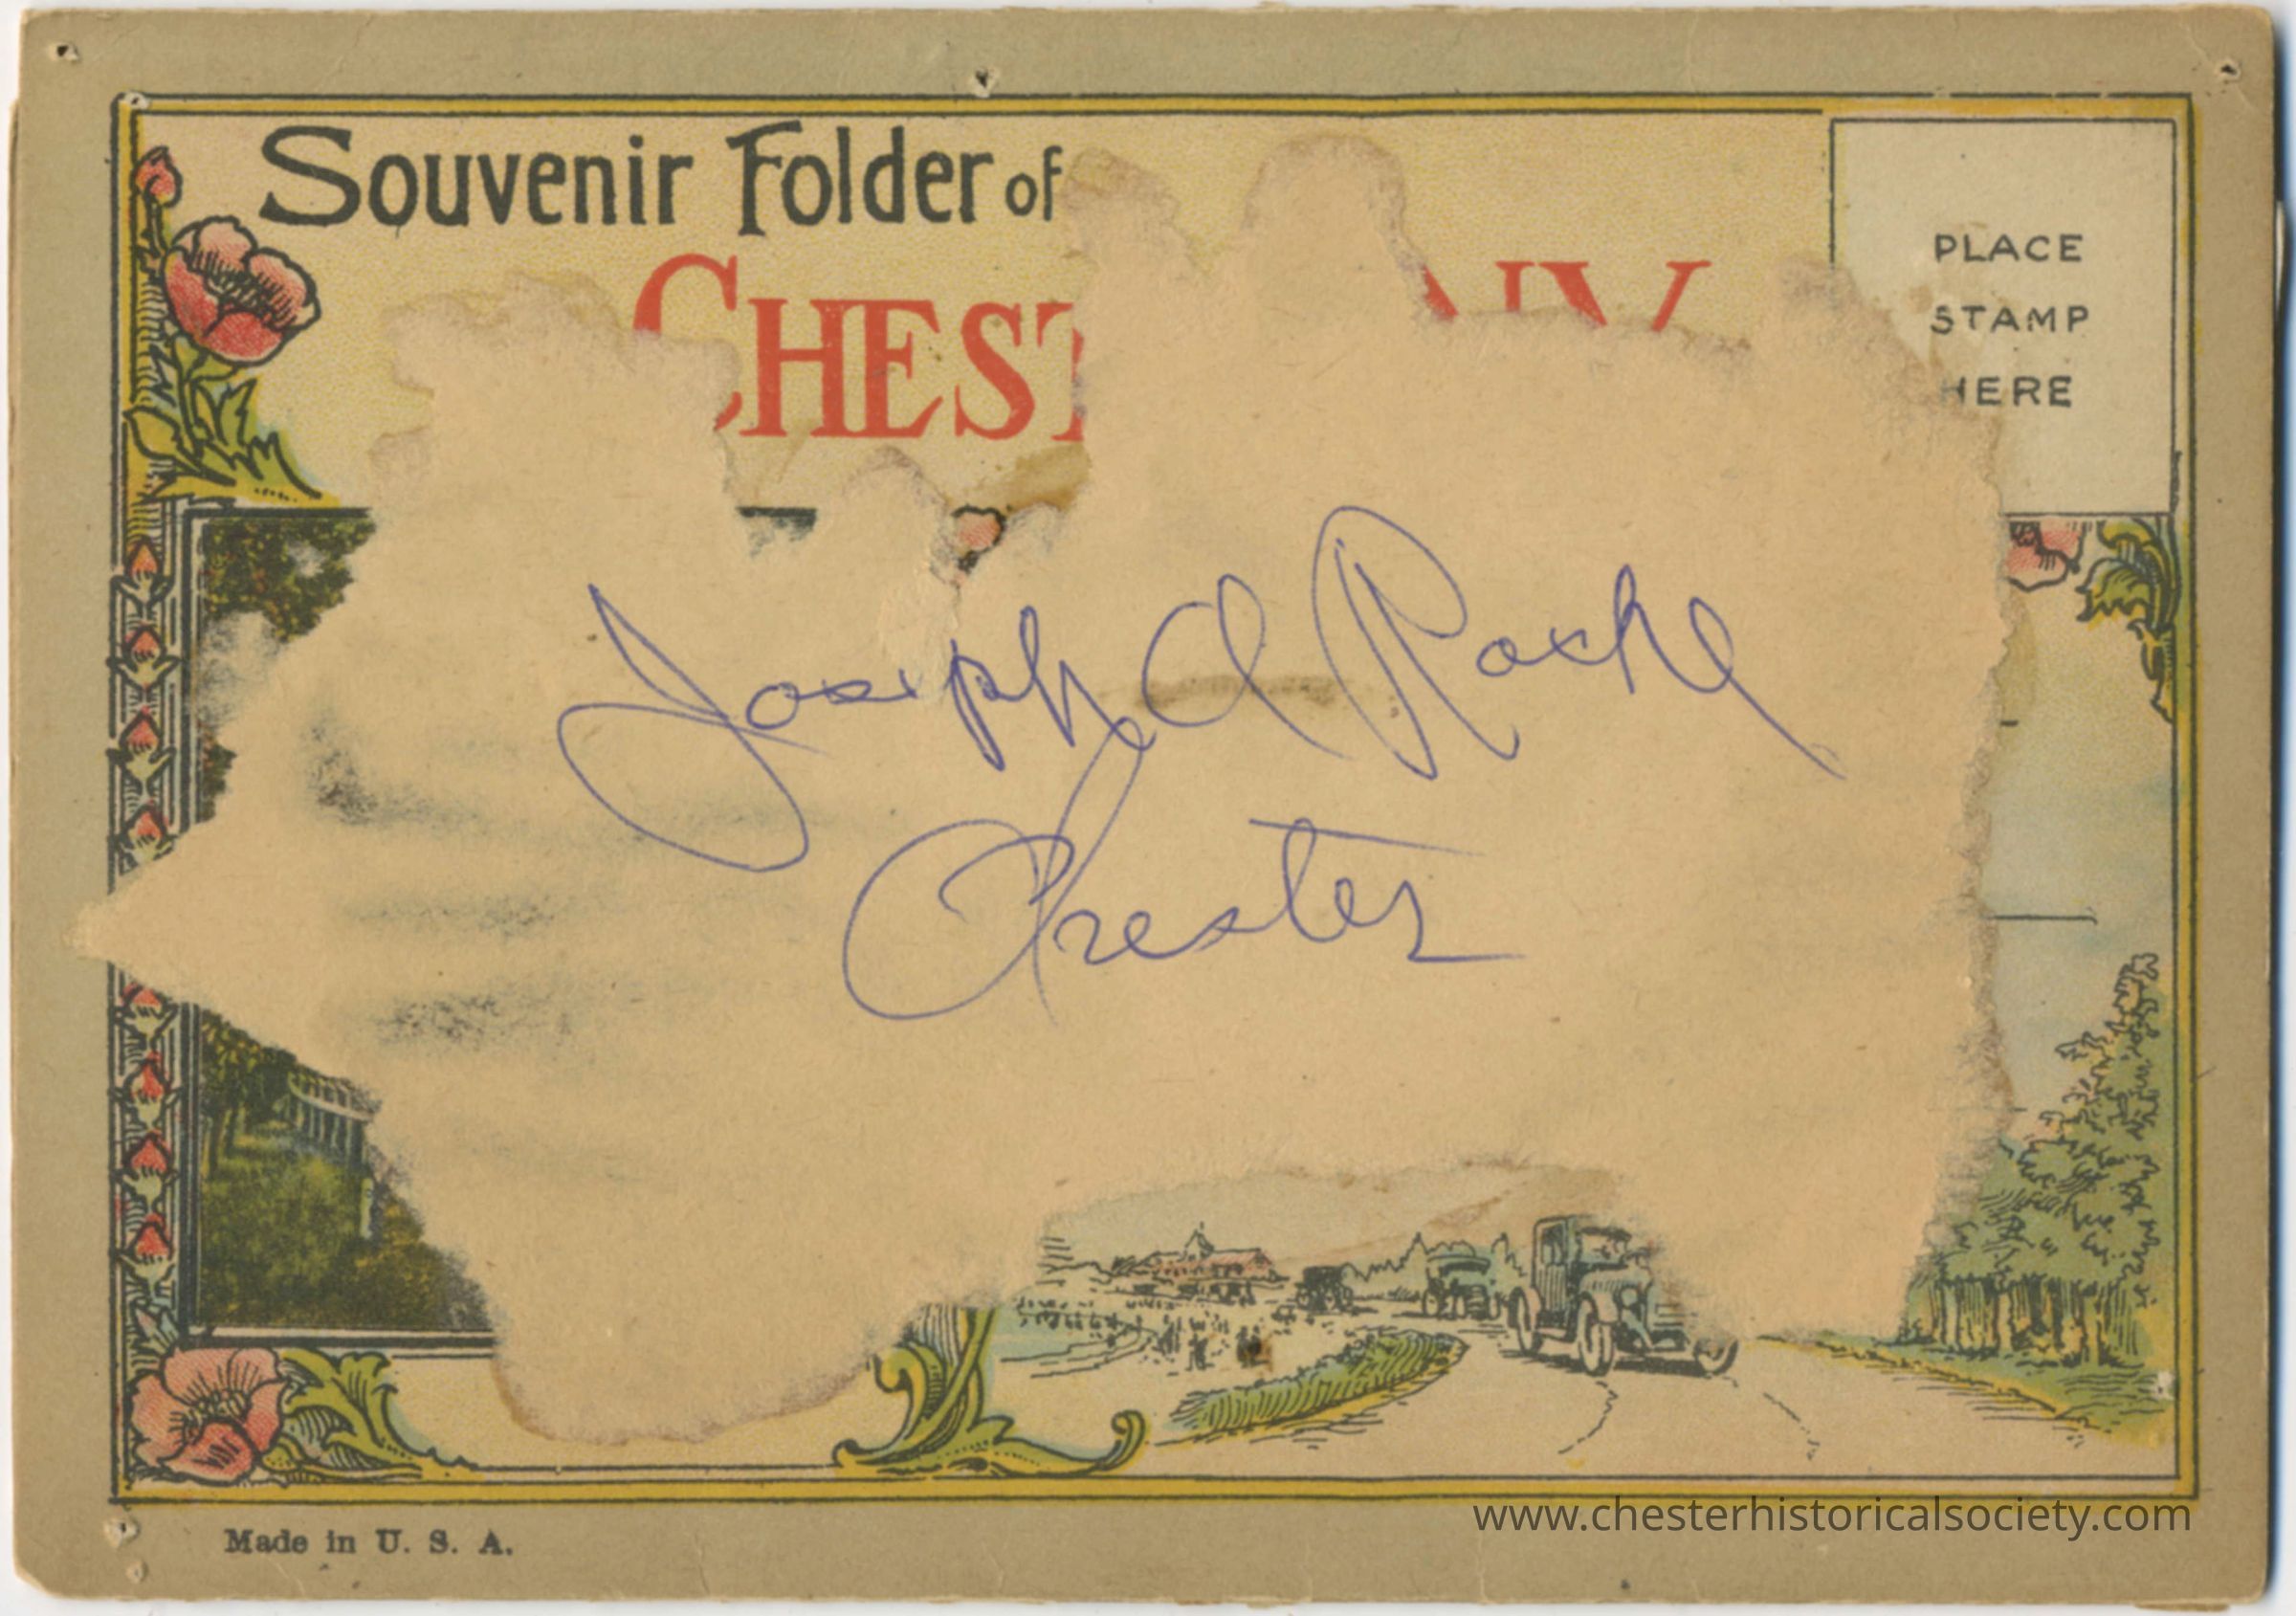 Souvenir Folder of
CHEST NY
PLACE
STAMP
HERE
Joseph A Roche
Chester
www.chesterhistoricalsociety.com
Made in U. S. A.